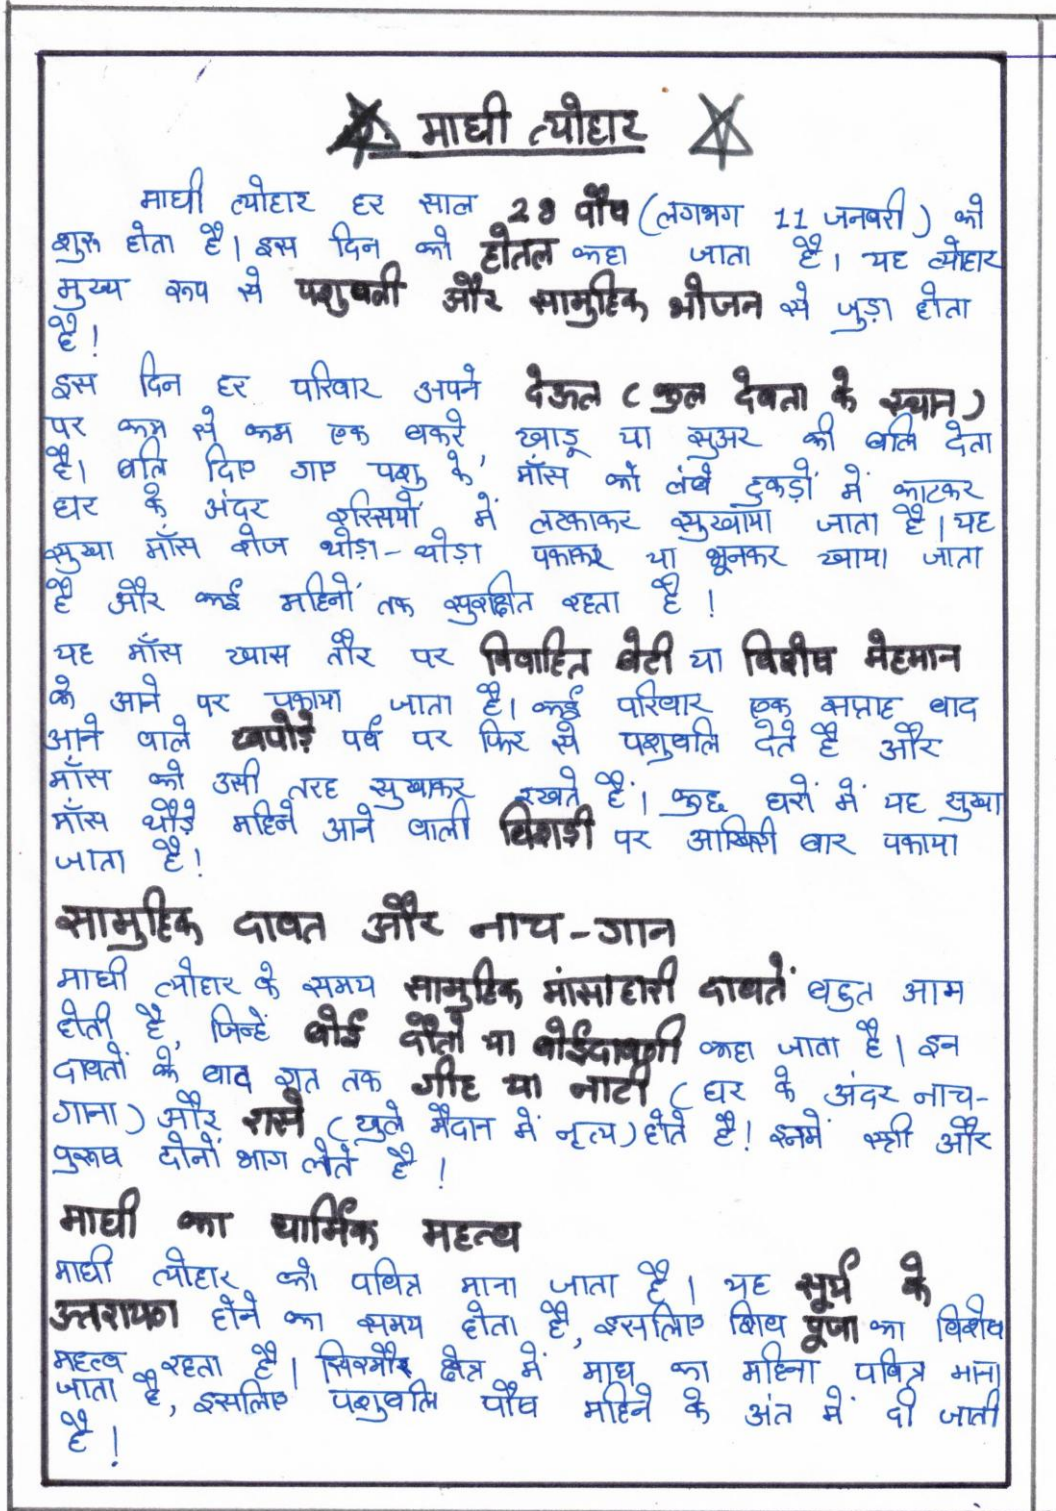 माघी त्योहार
माघी त्योहार हर साल 28 पौष (लगभग 11 जनवरी) को
शुरू होता है। इस दिन को होतल कहा जाता है। यह त्योहार
मुख्य रूप से पशुबली और सामुहिक भोजन से जुड़ा होता
है!
इस दिन हर परिवार अपने देऊल (कुल देवता के स्थान)
पर कम से कम एक बकरे, खाडू या सुअर की बलि देता
है। बलि दिए गए पशु के माँस को लंबे टुकड़ों में काटकर
घर के अंदर रस्सियों में लटकाकर सुखाया जाता है। यह
सुखा माँस रोज थोड़ा-थोड़ा पकाकर या भूनकर खाया जाता
है और कई महिनों तक सुरक्षित रहता है!
यह माँस खास तौर पर विवाहित बेटी या विशेष मेहमान
के आने पर पकाया जाता है। कई परिवार एक सप्ताह बाद
आने वाले खपोड़े पर्व पर फिर से पशुबलि देते है और
माँस को उसी तरह सुखाकर रखते हैं। कुछ घरों में यह सुखा
माँस थोड़े महिने आने वाली बिशड़ी पर आखिरी बार पकाया
जाता है!
सामुहिक दावत और नाच-गान
माघी त्योहार के समय सामुहिक मांसाहारी दावतें बहुत आम
होती है, जिन्हें बोई दौतो या बोईदावणी कहा जाता है। इन
दावतों के बाद रात तक गीह या नाटी (घर के अंदर नाच-
गाना) और रासे (खुले मैदान में नृत्य) होते है! इनमें स्त्री और
पुरूष दोनों भाग लेते है!
माघी का धार्मिक महत्व
माघी त्योहार को पवित्र माना जाता है। यह सूर्य के
उत्तरायण होने का समय होता है, इसलिए शिव पूजा का विशेष
महत्व रहता है। सिरमौर क्षेत्र में माघ का महिना पवित्र माना
जाता है, इसलिए पशुबलि पौष महिने के अंत में दी जाती
है!